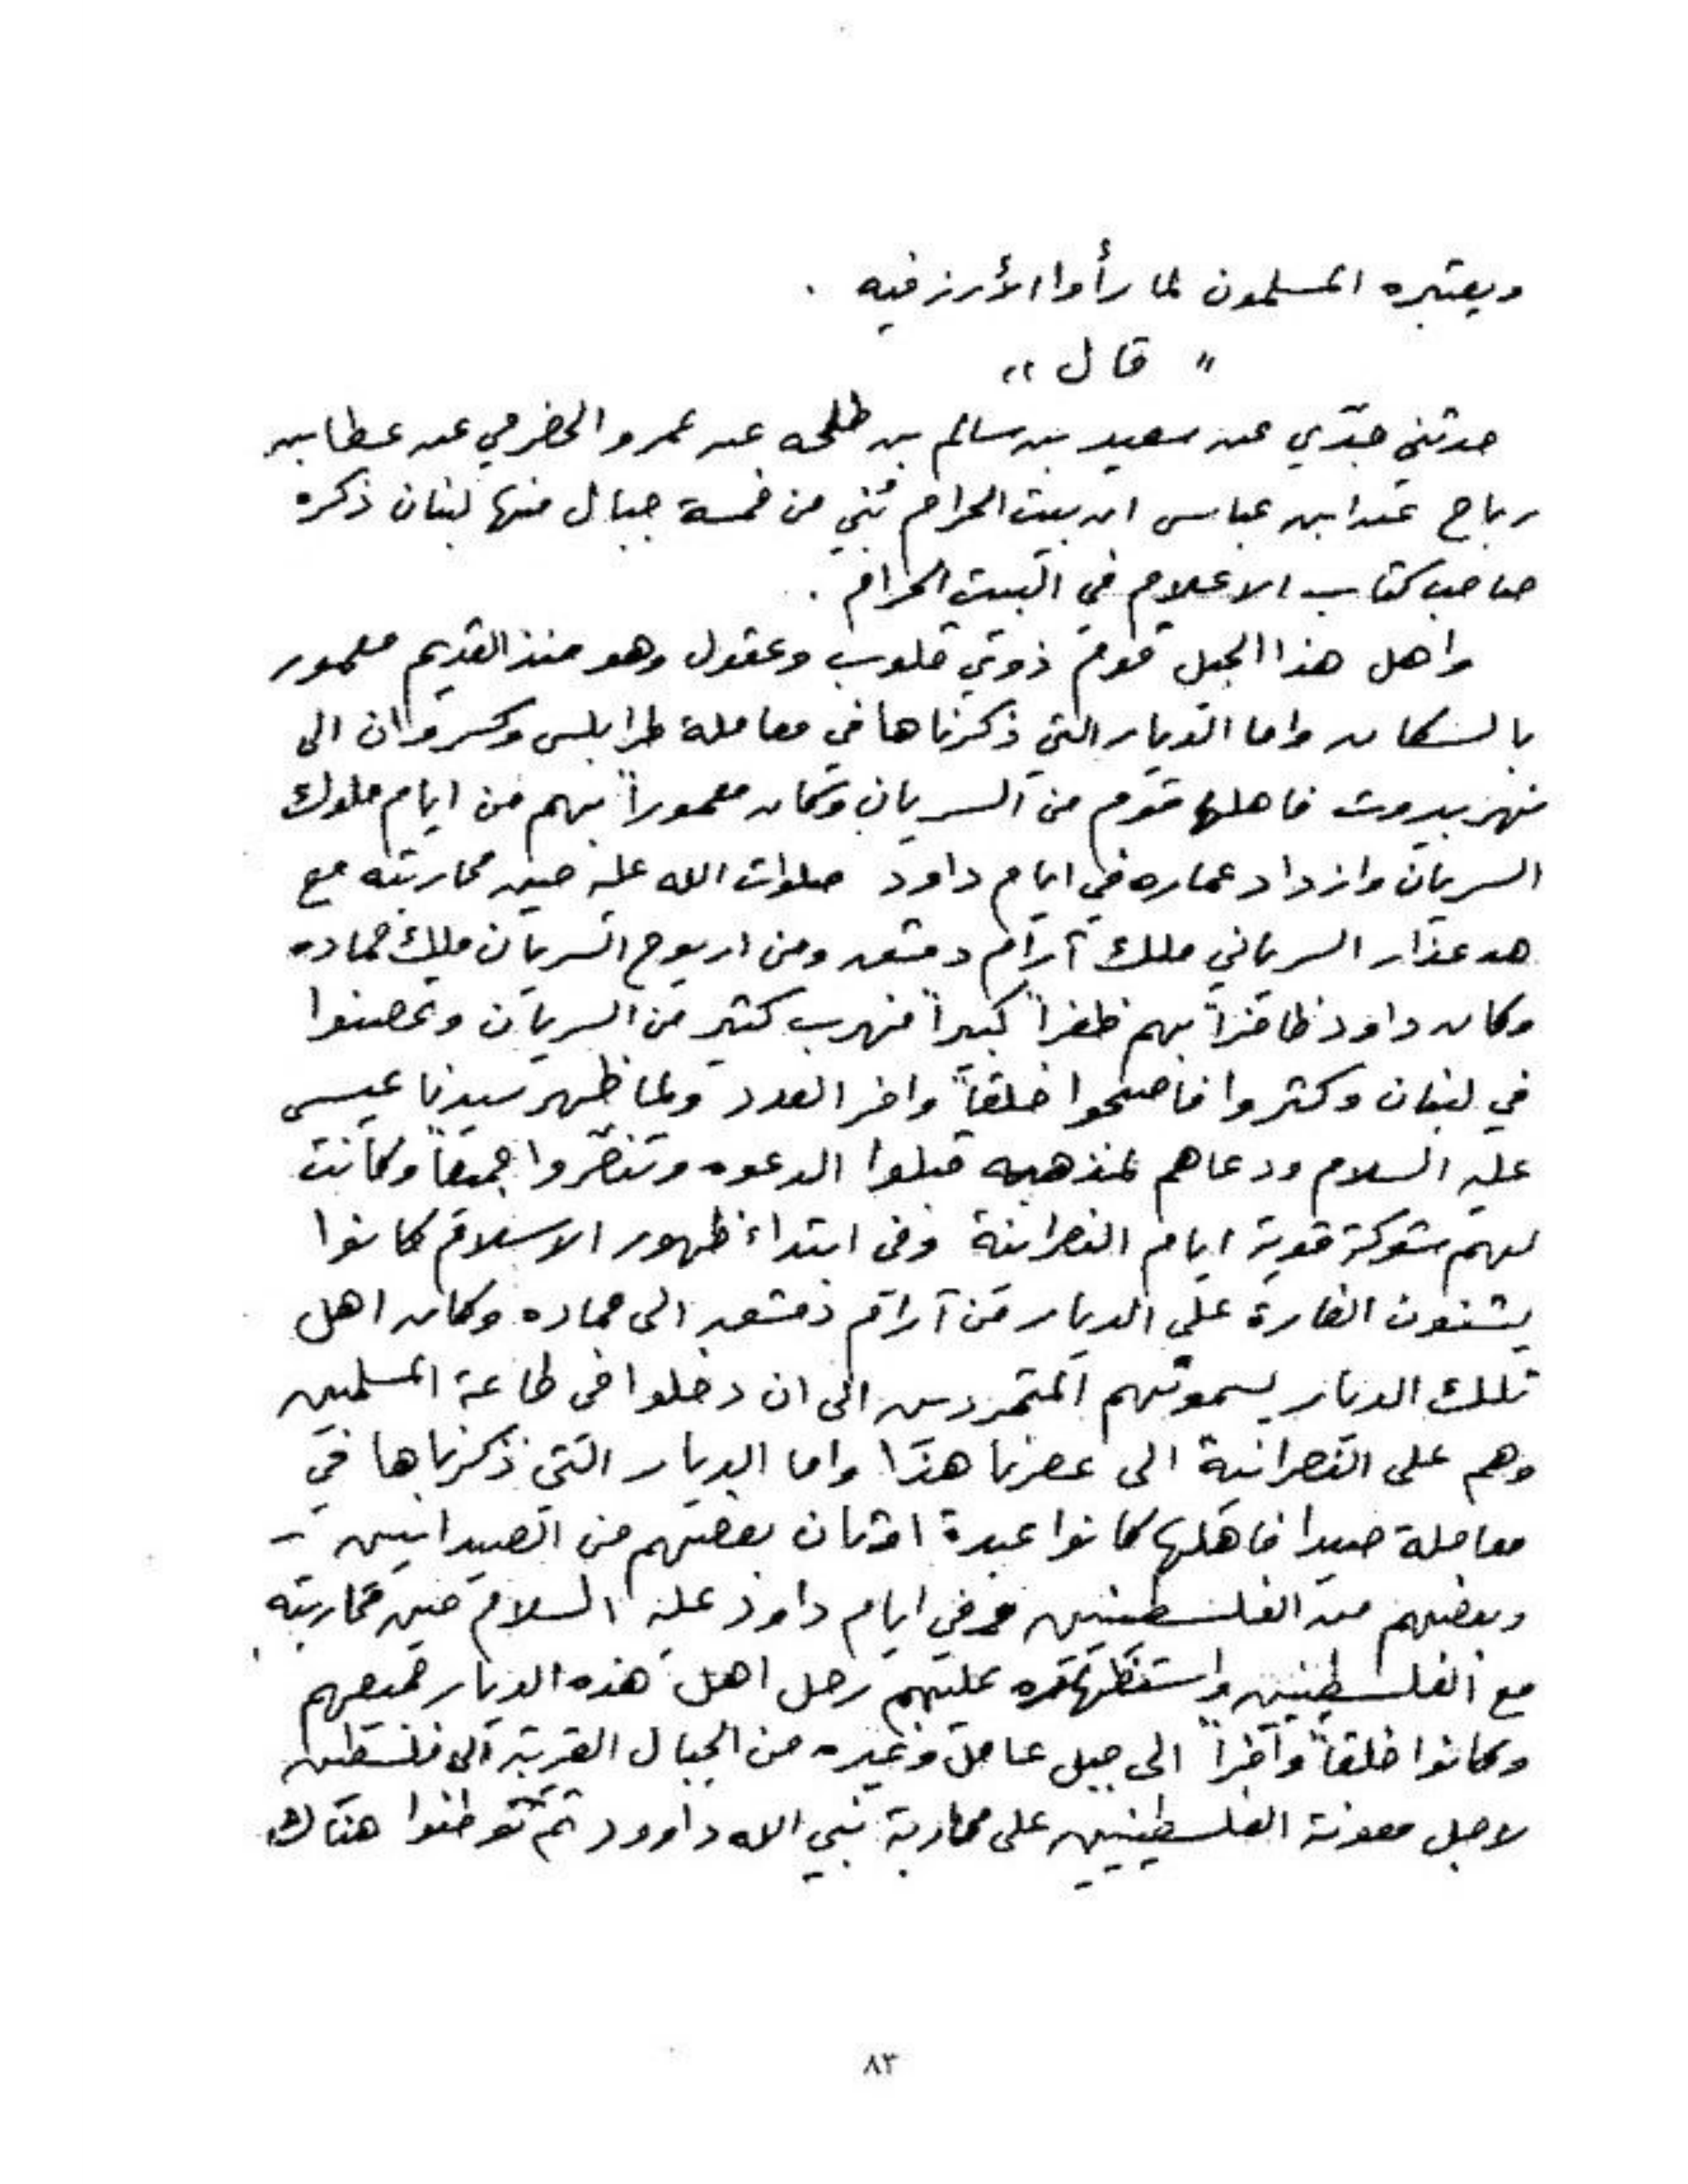 ويعتبره المسلمون لما رأوا الأرز فيه .
" قال "
حدثني جدّي عن سعيد بن سالم بن طلحه عن عمرو الحضرمي عن عطا بن
رباح عند ابن عباس ان بيت الحرام بُني من خمسة جبال منها لبنان ذكره
صاحب كتاب الاعلام في البيت الحرام .
واهل هذا الجبل قوم ذوي قلوب وعقول وهو منذ القديم معمور
بالسكان واما الديار التي ذكرناها في معاملة طرابلس وكسروان الى
نهر بيروت فاهلها قوم من السريان وكان معموراً بهم من ايام ملوك
السريان وازداد عماره في ايام داود صلوات الله عليه حين محاربته مع
هدعذار السرياني ملك آرام دمشق ومن اربوح السريان ملك حماده
وكان داود ظافراً بهم ظفراً كبيراً فهرب كثير من السريان وتحصنوا
في لبنان وكثروا فاصبحوا خلقاً وافر العدد ولما ظهر سيدنا عيسى
عليه السلام ودعاهم لمذهبه قبلوا الدعوه وتنصّروا جميعاً وكانت
لهم شوكة قوية ايام النصرانية وفي ابتداء ظهور الاسلام كانوا
يشنون الغارة على الديار من آرام دمشق الى حماده وكان اهل
تلك الديار يسمونهم المتمردين الى ان دخلوا في طاعة المسلمين
وهم على النصرانية الى عصرنا هذا واما الديار التي ذكرناها في
معاملة صيدا فاهلها كانوا عبدة اوثان بعضهم من الصيدانيين -
وبعضهم من الفلسطينيين وفي ايام داود عليه السلام حين محاربته
مع الفلسطينيين عليهم رحل اهل هذه الديار جميعهم
وكانوا خلقاً وافراً الى جبل عامل وغيره من الجبال القريبة الى فلسطين
لاجل معونة الفلسطينيين على محاربة نبي الله داوود ثم توطنوا هناك
٨٣